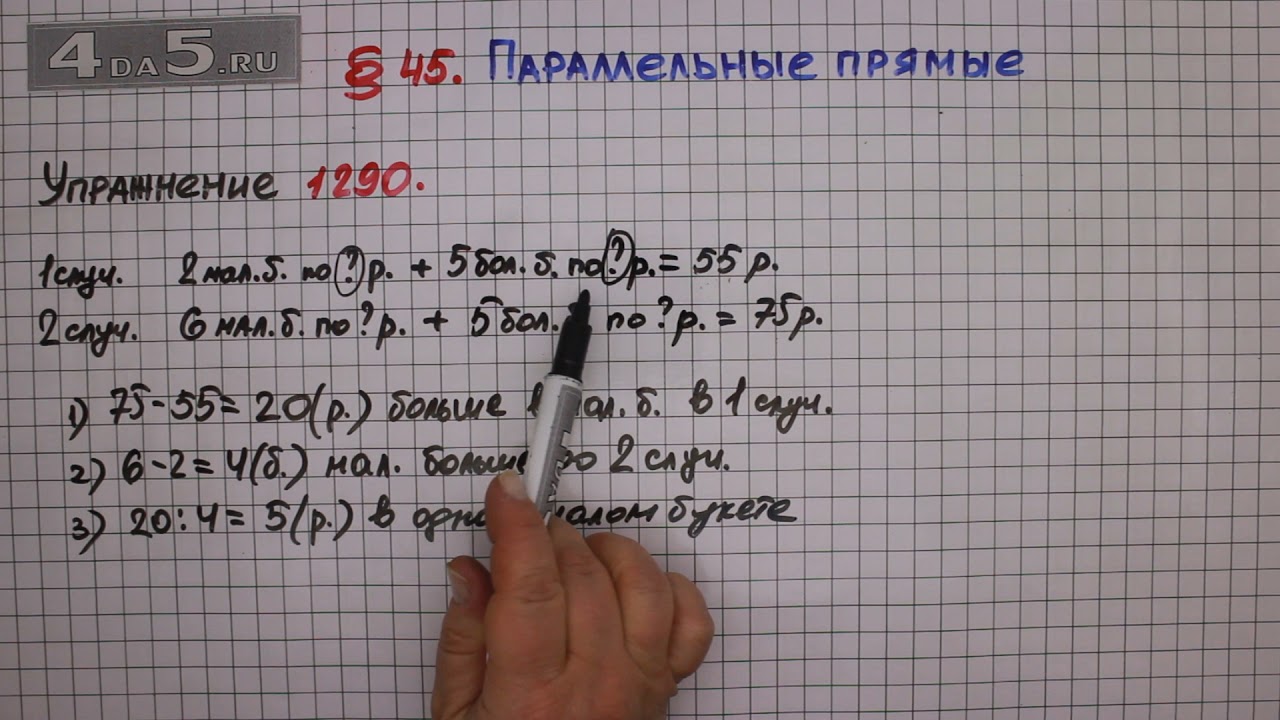 4DA5.RU
§ 45. Параллельные прямые
Упражнение 1290.
1 случ. 2 мал. б. по ? р. + 5 бол. б. по ? р. = 55 р.
2 случ. 6 мал. б. по ? р. + 5 бол. по ? р. = 75 р.
1) 75 - 55 = 20 (р.) больше б. в 1 случ.
2) 6 - 2 = 4 (б.) мал. больше во 2 случ.
3) 20 : 4 = 5 (р.) в малом букете